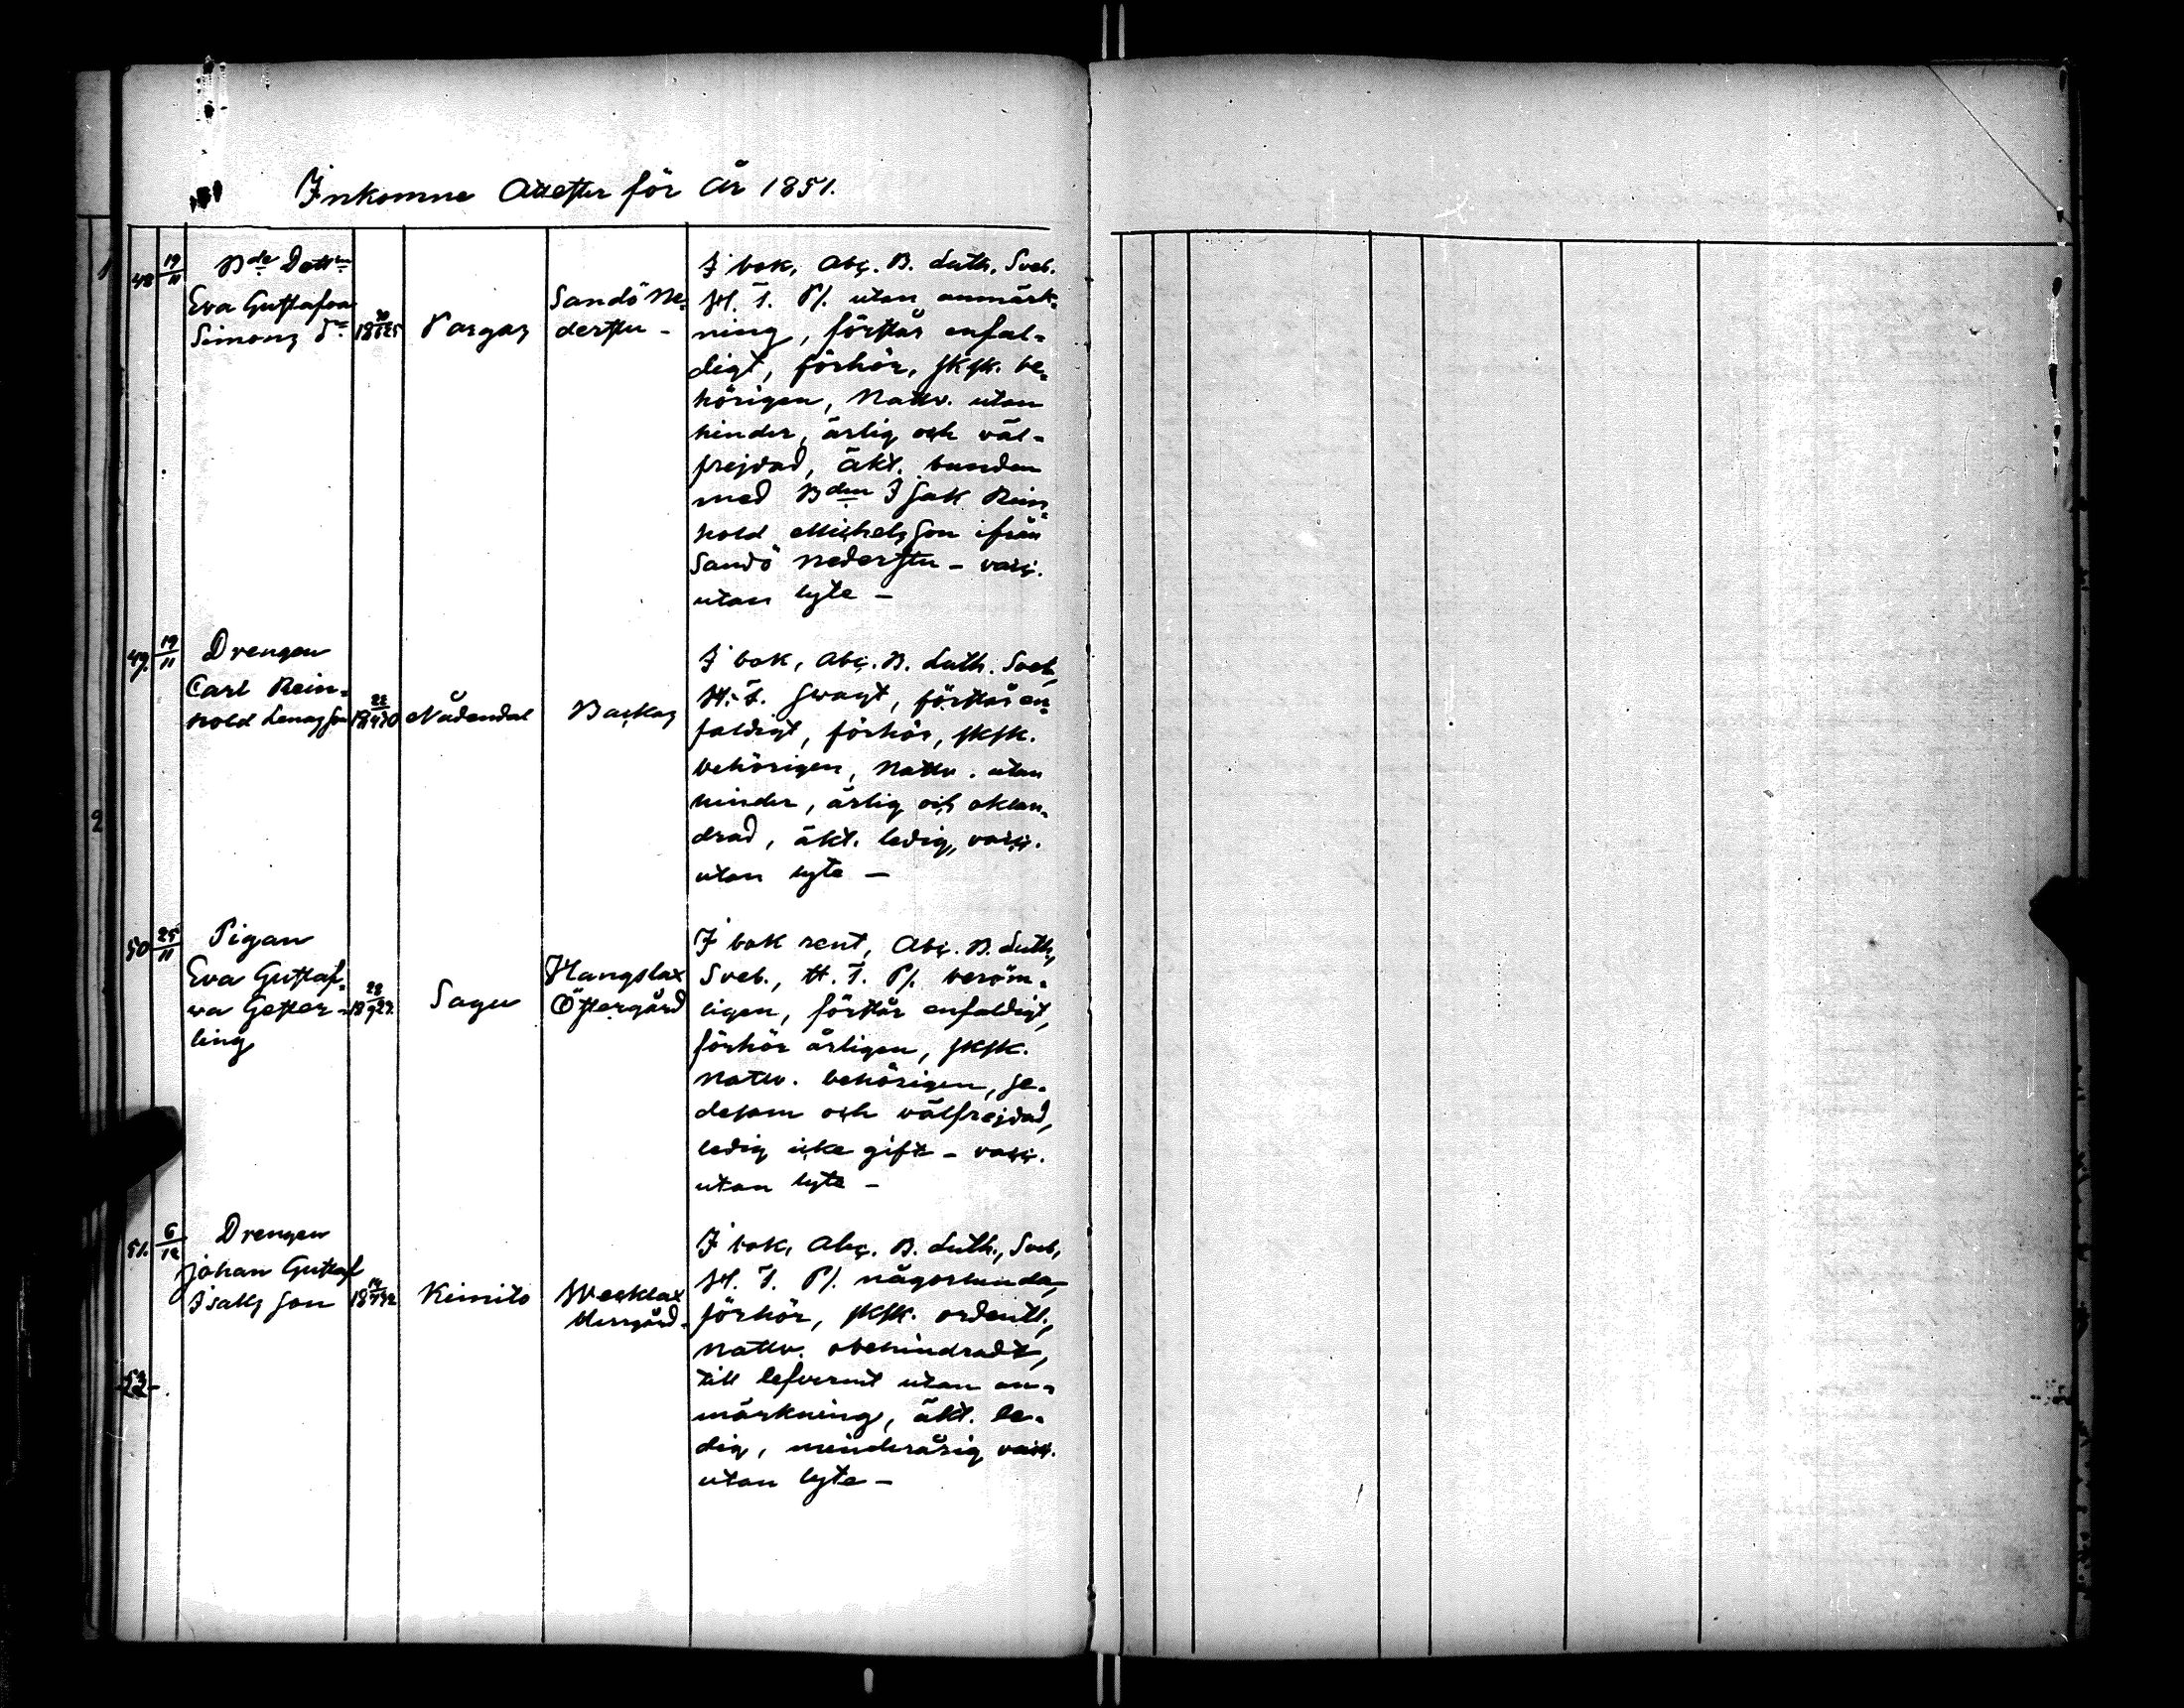 Inkomne Attester för år 1851.
48 19/11 Bde Dottn
Eva Gustafva
Simons Dr
Pargas
Sandö Ne-
derstu -
I bok, Abc. B. Luth. Sveb.
H. T. Ps. utan anmärk-
ning, förstår enfal-
digt, förhör, skrk. be-
hörigen, Nattv. utan
hinder, ärlig och väl-
frejdad, äkt. bunden
med Bdn Isak Rein-
hold Michelsson ifrån
Sandö Nederstu - vacc.
utan lyte -
49. 19/11 Drengen
Carl Rein-
hold Lenasson
Nådendal
Backas
I bok, Abc. B. Luth. Sveb,
H. T. svagt, förstår en-
faldigt, förhör, skrk.
behörigen, Nattv. utan
hinder, ärlig och oklan-
drad, äkt. ledig, vacc.
utan lyte -
50 25/11 Pigan
Eva Gustaf-
va Gester-
ling
Sagu
Hangslax
Östergård
I bok rent, Abc. B. Luth.,
Sveb., H. T. Ps. beröm-
ligen, förstår enfaldigt,
förhör årligen, skrk.
Nattv. behörigen, se-
desam och välfrejdad,
ledig icke gift - vacc.
utan lyte -
51. 6/12 Drengen
Johan Gustaf
Isaks son
Kimito
Wecklax
I bok, Abc. B. Luth., Sveb,
H. T. Ps. någorlunda,
förhör, skrk. ordentl.,
Nattv. obehindradt,
till lefvernet utan an-
märkning, äkt. le-
dig, minderårig vacc.
utan lyte -